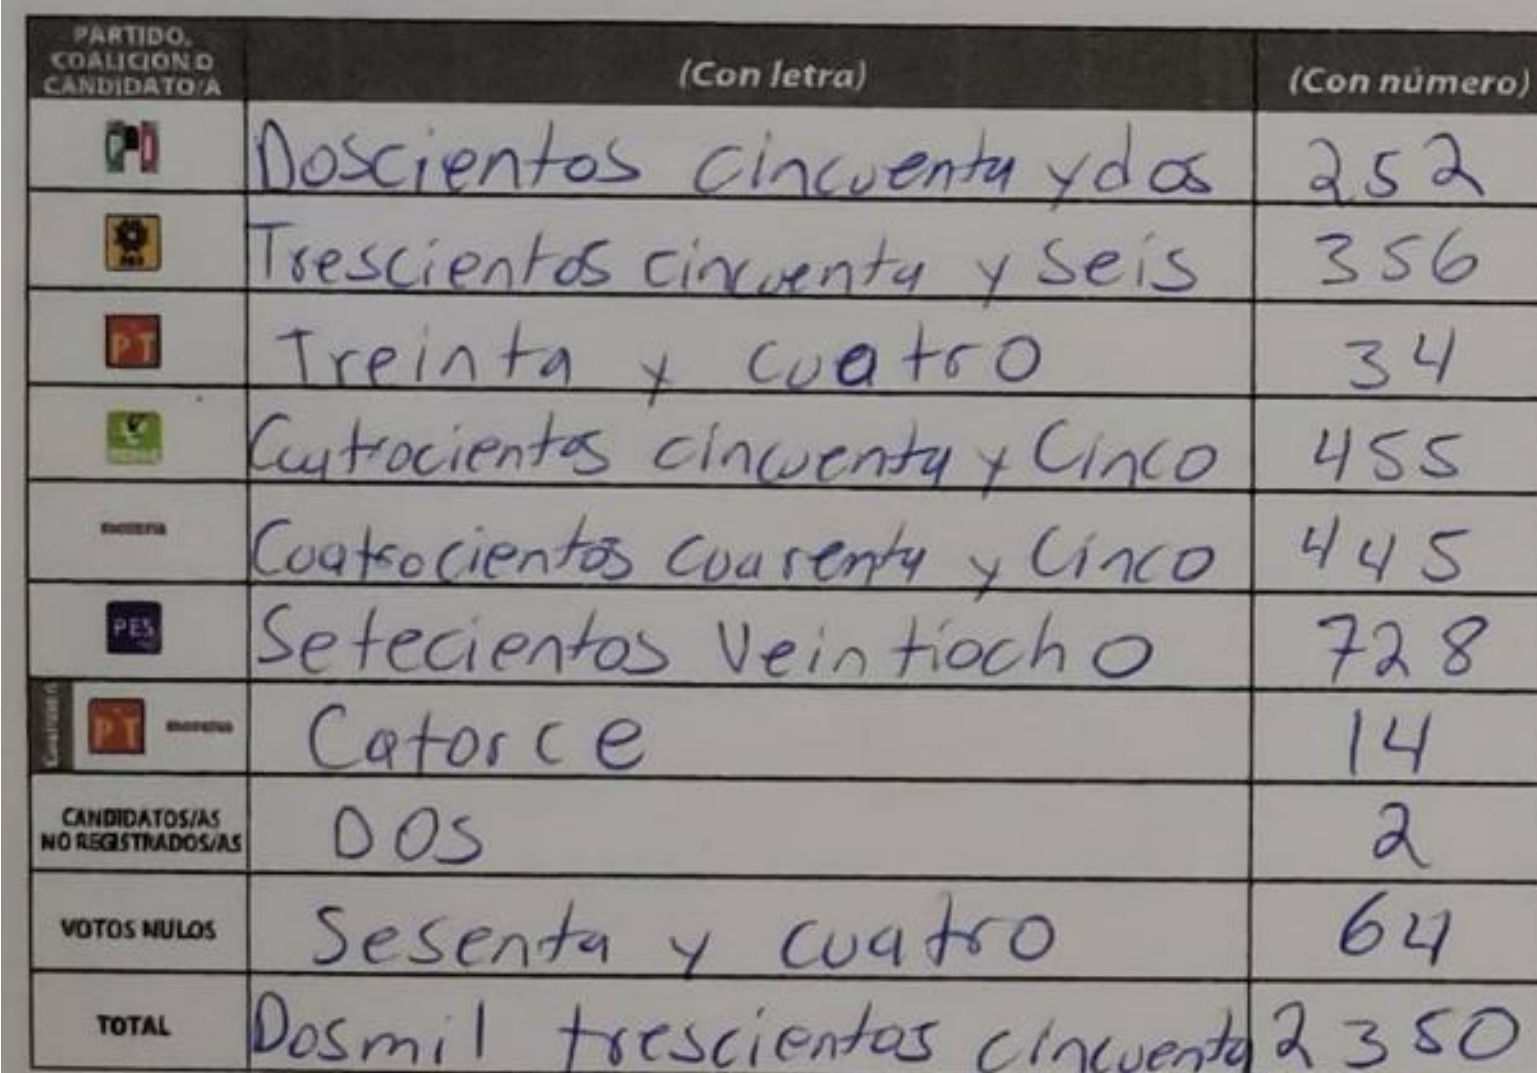 PARTIDO, COALICIÓN O CANDIDATO/A (Con letra) (Con número)
PRI Doscientos cincuenta y dos 252
PRD Trescientos cincuenta y Seis 356
PT Treinta y cuatro 34
VERDE Cuatrocientos cincuenta y Cinco 455
morena Cuatrocientos Cuarenta y Cinco 445
PES Setecientos Veintiocho 728
Coalición PT morena Catorce 14
CANDIDATOS/AS NO REGISTRADOS/AS DOS 2
VOTOS NULOS Sesenta y cuatro 64
TOTAL Dosmil trescientos cincuenta 2350